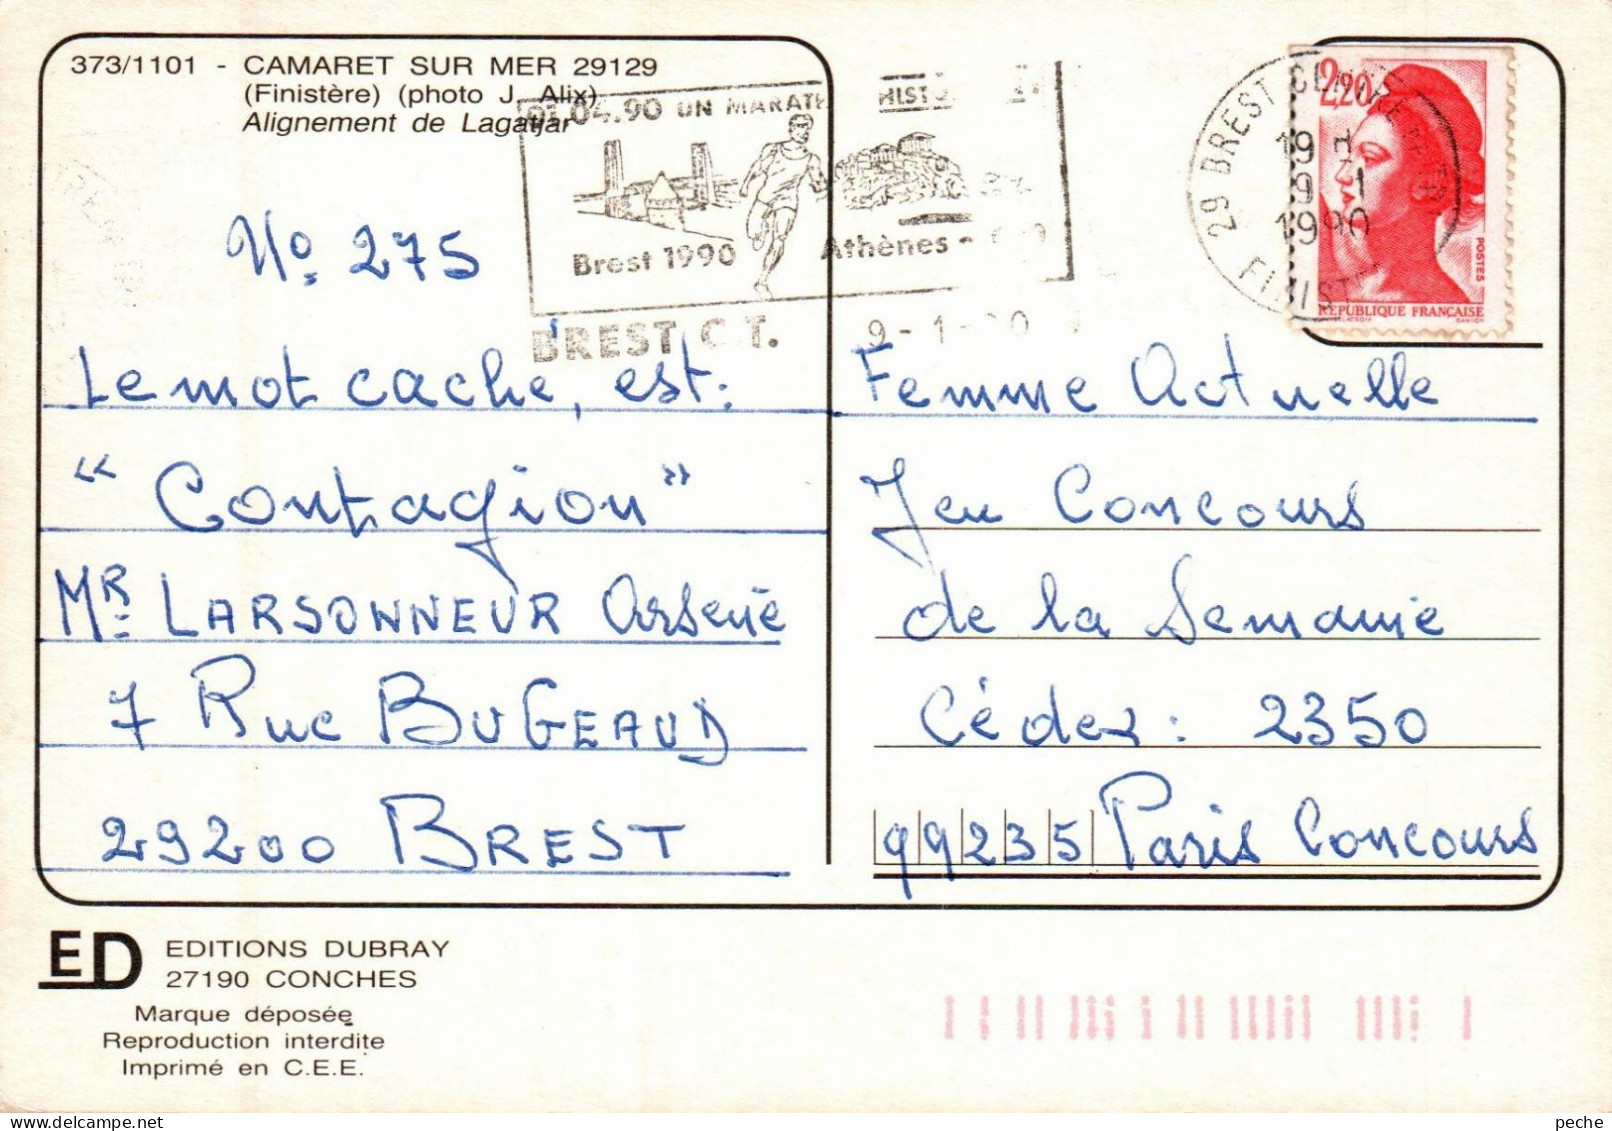 373/1101 - CAMARET SUR MER 29129
(Finistère) (photo J. Alix)
Alignement de Lagatjar
04.90 UN MARATH HISTO
Brest 1990 Athènes -
BREST C T. 9-1- 0
29 BREST CENTRE
19 H
9 - 1
1990
FINIST
2,20
POSTES
REPUBLIQUE FRANÇAISE
No. 275
Le mot caché, est:
“Contagion”
MR. LARSONNEUR Arsene
7 Rue BUGEAUD
29200 BREST
Femme Actuelle
Jeu Concours
de la Semaine
Cédex : 2350
99235 Paris Concours
ED
EDITIONS DUBRAY
27190 CONCHES
Marque déposée
Reproduction interdite
Imprimé en C.E.E.
peche